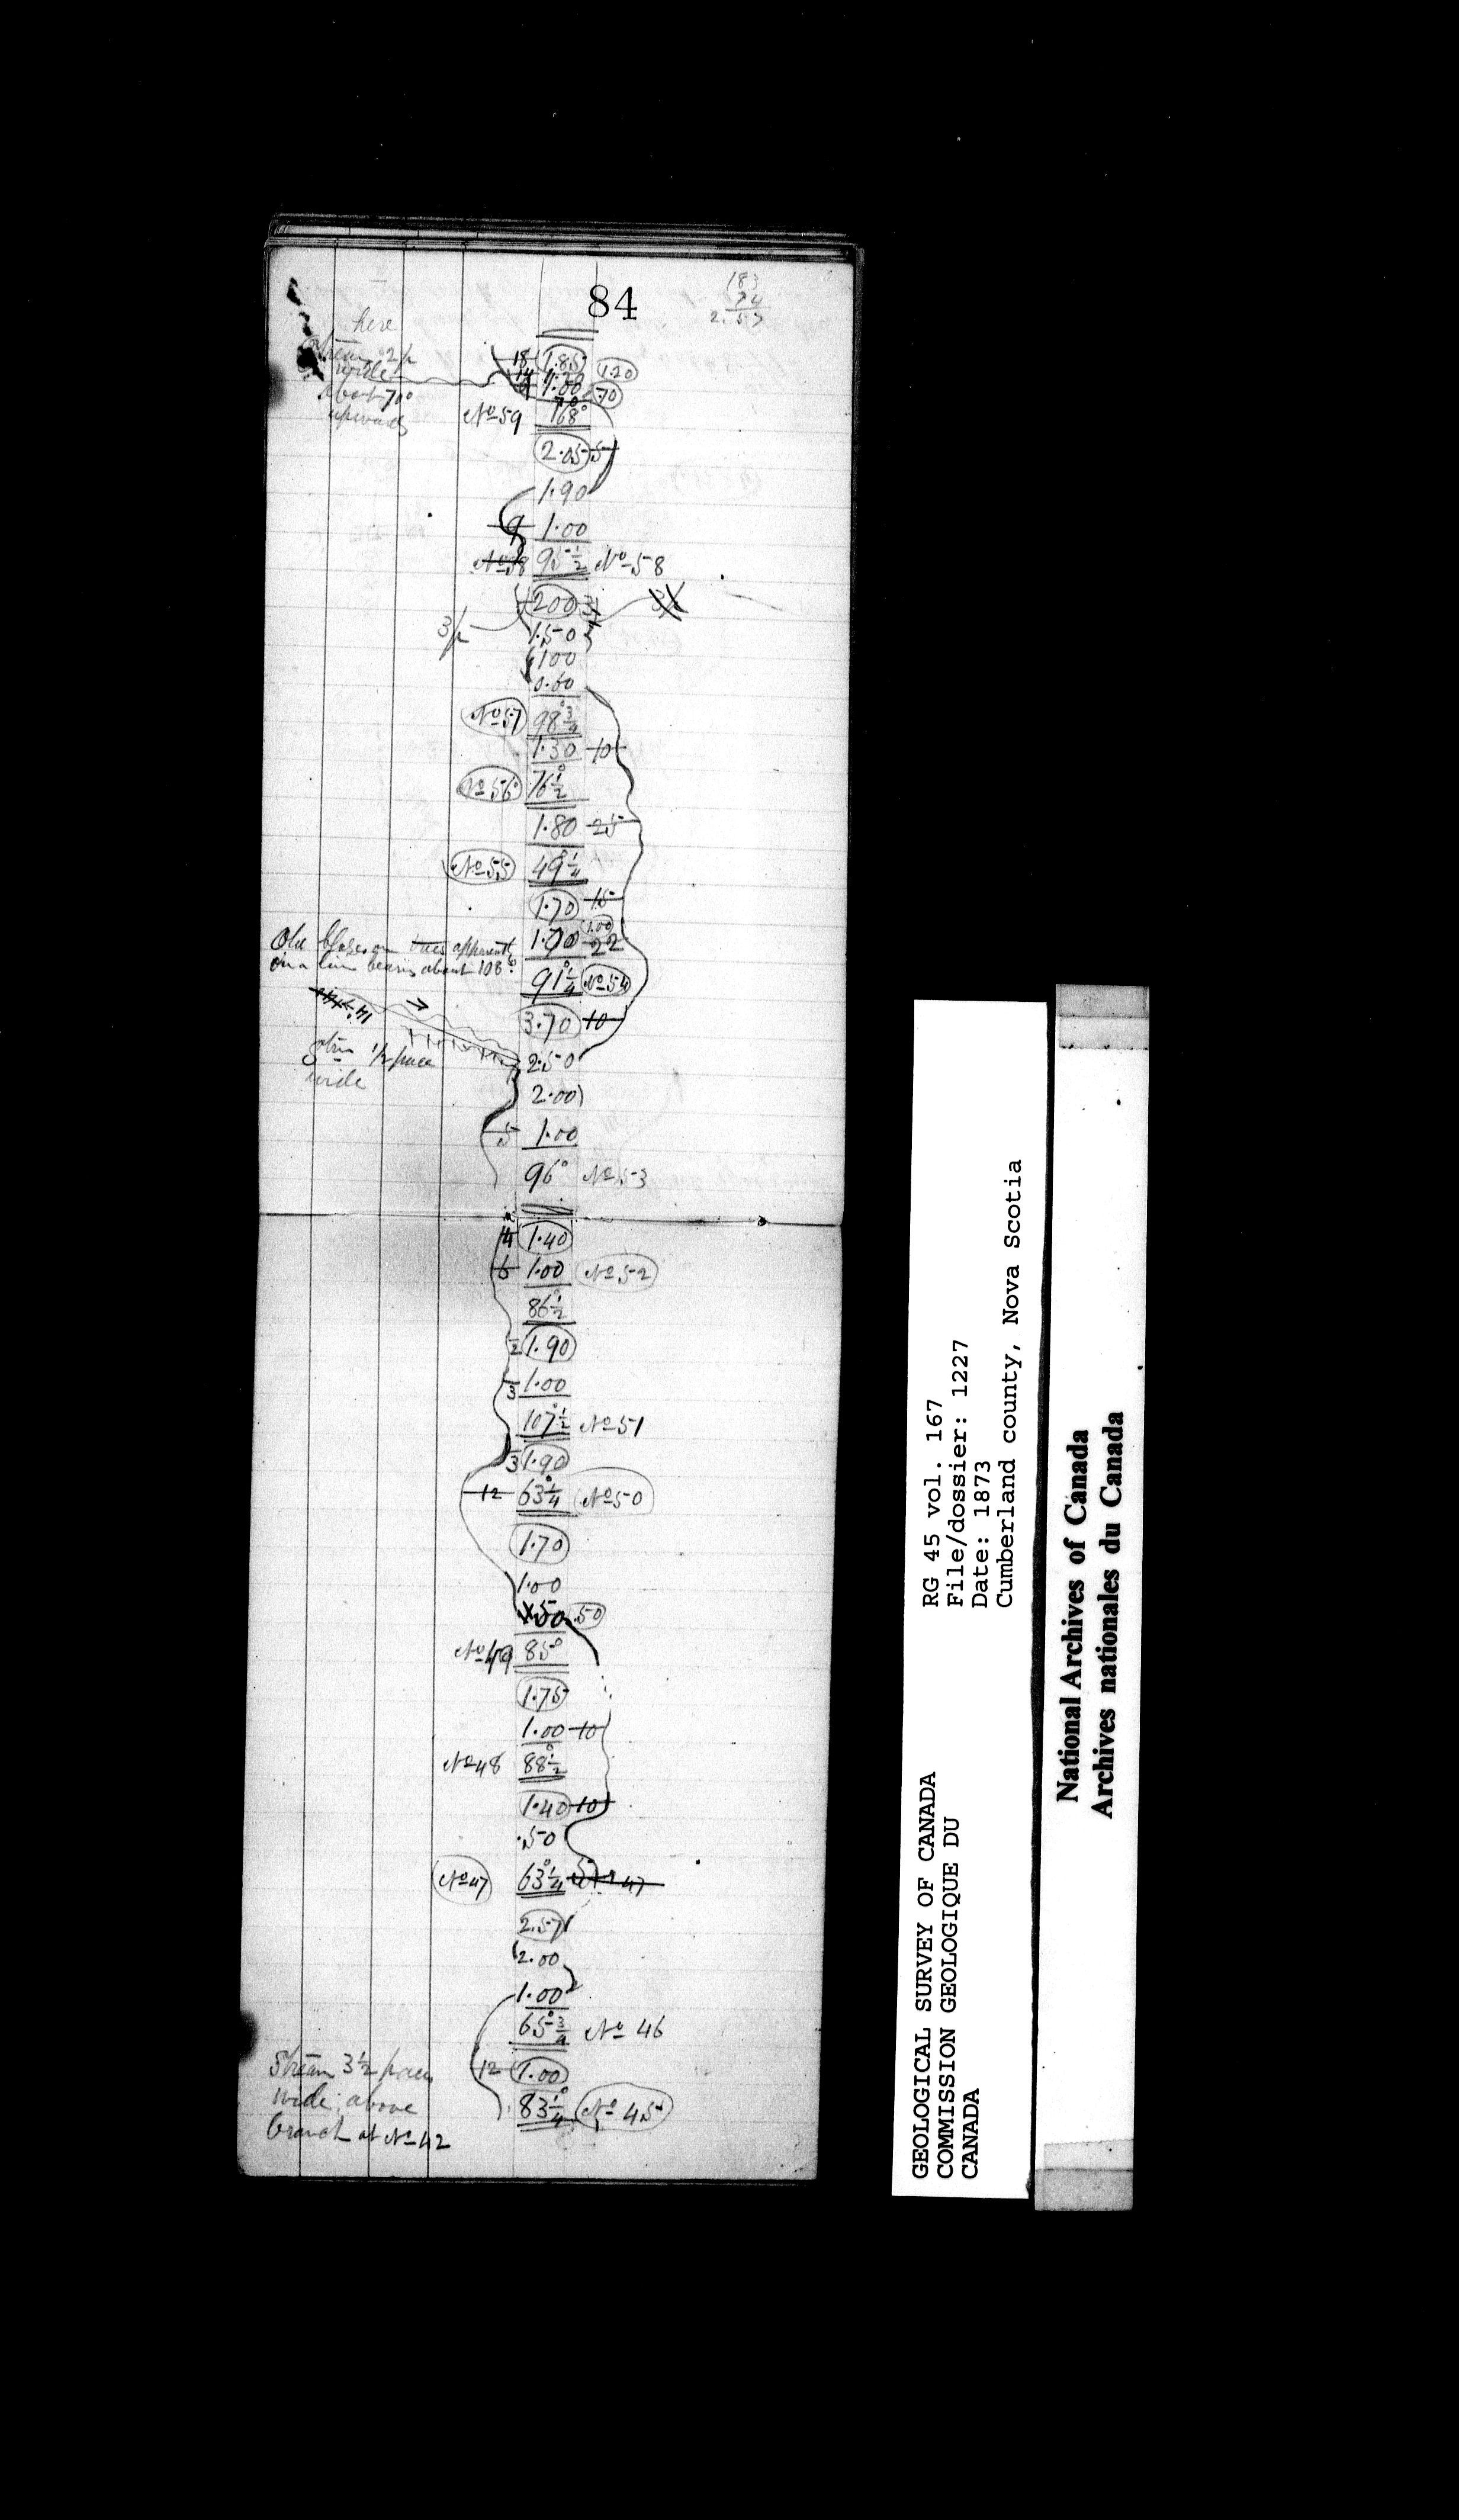 84
183
74
2.57
here
Stream 2p
wide
about 70°
upwards
18 1.85
14 1.20 1.20
9 1.00 .70
.70
No 59 168°
2.05 5
1.90
9 1.00
No 58 95½ No 58
200 3
3p 1.50
100
0.60
No 57 98°¾
1.30 10
No 56 76°½
1.80 25
No 55 49°¼
1.70 15
1.00
1.00 22
Old blazes on trees apparently
on a line bearing about 108°
91°¼ No 54
3.70 10
½ pace
wide
2.50
2.00
5 1.00
96° No 53
14 1.40
6 1.00 No 52
86°½
2 1.90
3 1.00
107°½ No 51
3 1.90
12 63°¼ No 50
1.70
1.00
.50 .50
No 49 85°
1.75
1.00 10
No 48 88°½
1.40 10
.50
No 47 63°¼ 5 No 47
2.57
2.00
1.00
65°¾ No 46
12 1.00
83°¼ No 45
Stream 3½ paces
wide above
branch at No 42
GEOLOGICAL SURVEY OF CANADA
COMMISSION GEOLOGIQUE DU
CANADA
RG 45 vol. 167
File/dossier: 1227
Date: 1873
Cumberland county, Nova Scotia
National Archives of Canada
Archives nationales du Canada